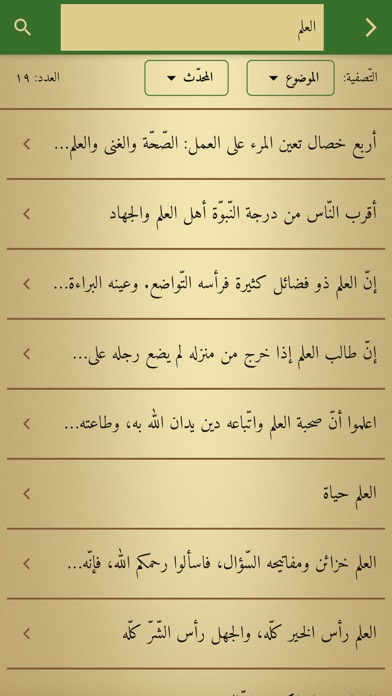 العلم
التّصفية: الموضوع المحدّث العدد: ١٩
أربع خصال تعين المرء على العمل: الصّحّة والغنى والعلم...
أقرب النّاس من درجة النّبوّة أهل العلم والجهاد
إنّ العلم ذو فضائل كثيرة فرأسه التّواضع. وعينه البراءة...
إنّ طالب العلم إذا خرج من منزله لم يضع رجله على...
اعلموا أنّ صحبة العلم واتّباعه دين يدان الله به، وطاعته...
العلم حياة
العلم خزائن ومفاتيحه السّؤال، فاسألوا رحمكم الله، فإنّه...
العلم رأس الخير كلّه، والجهل رأس الشّرّ كلّه